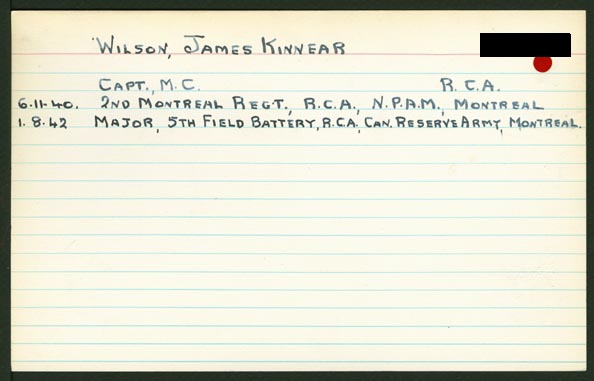 WILSON, JAMES KINNEAR
CAPT., M.C. R.C.A.
6.11.40. 2ND MONTREAL REGT., R.C.A., N.P.A.M., MONTREAL
1.8.42 MAJOR, 5TH FIELD BATTERY, R.C.A. CAN. RESERVE ARMY, MONTREAL.